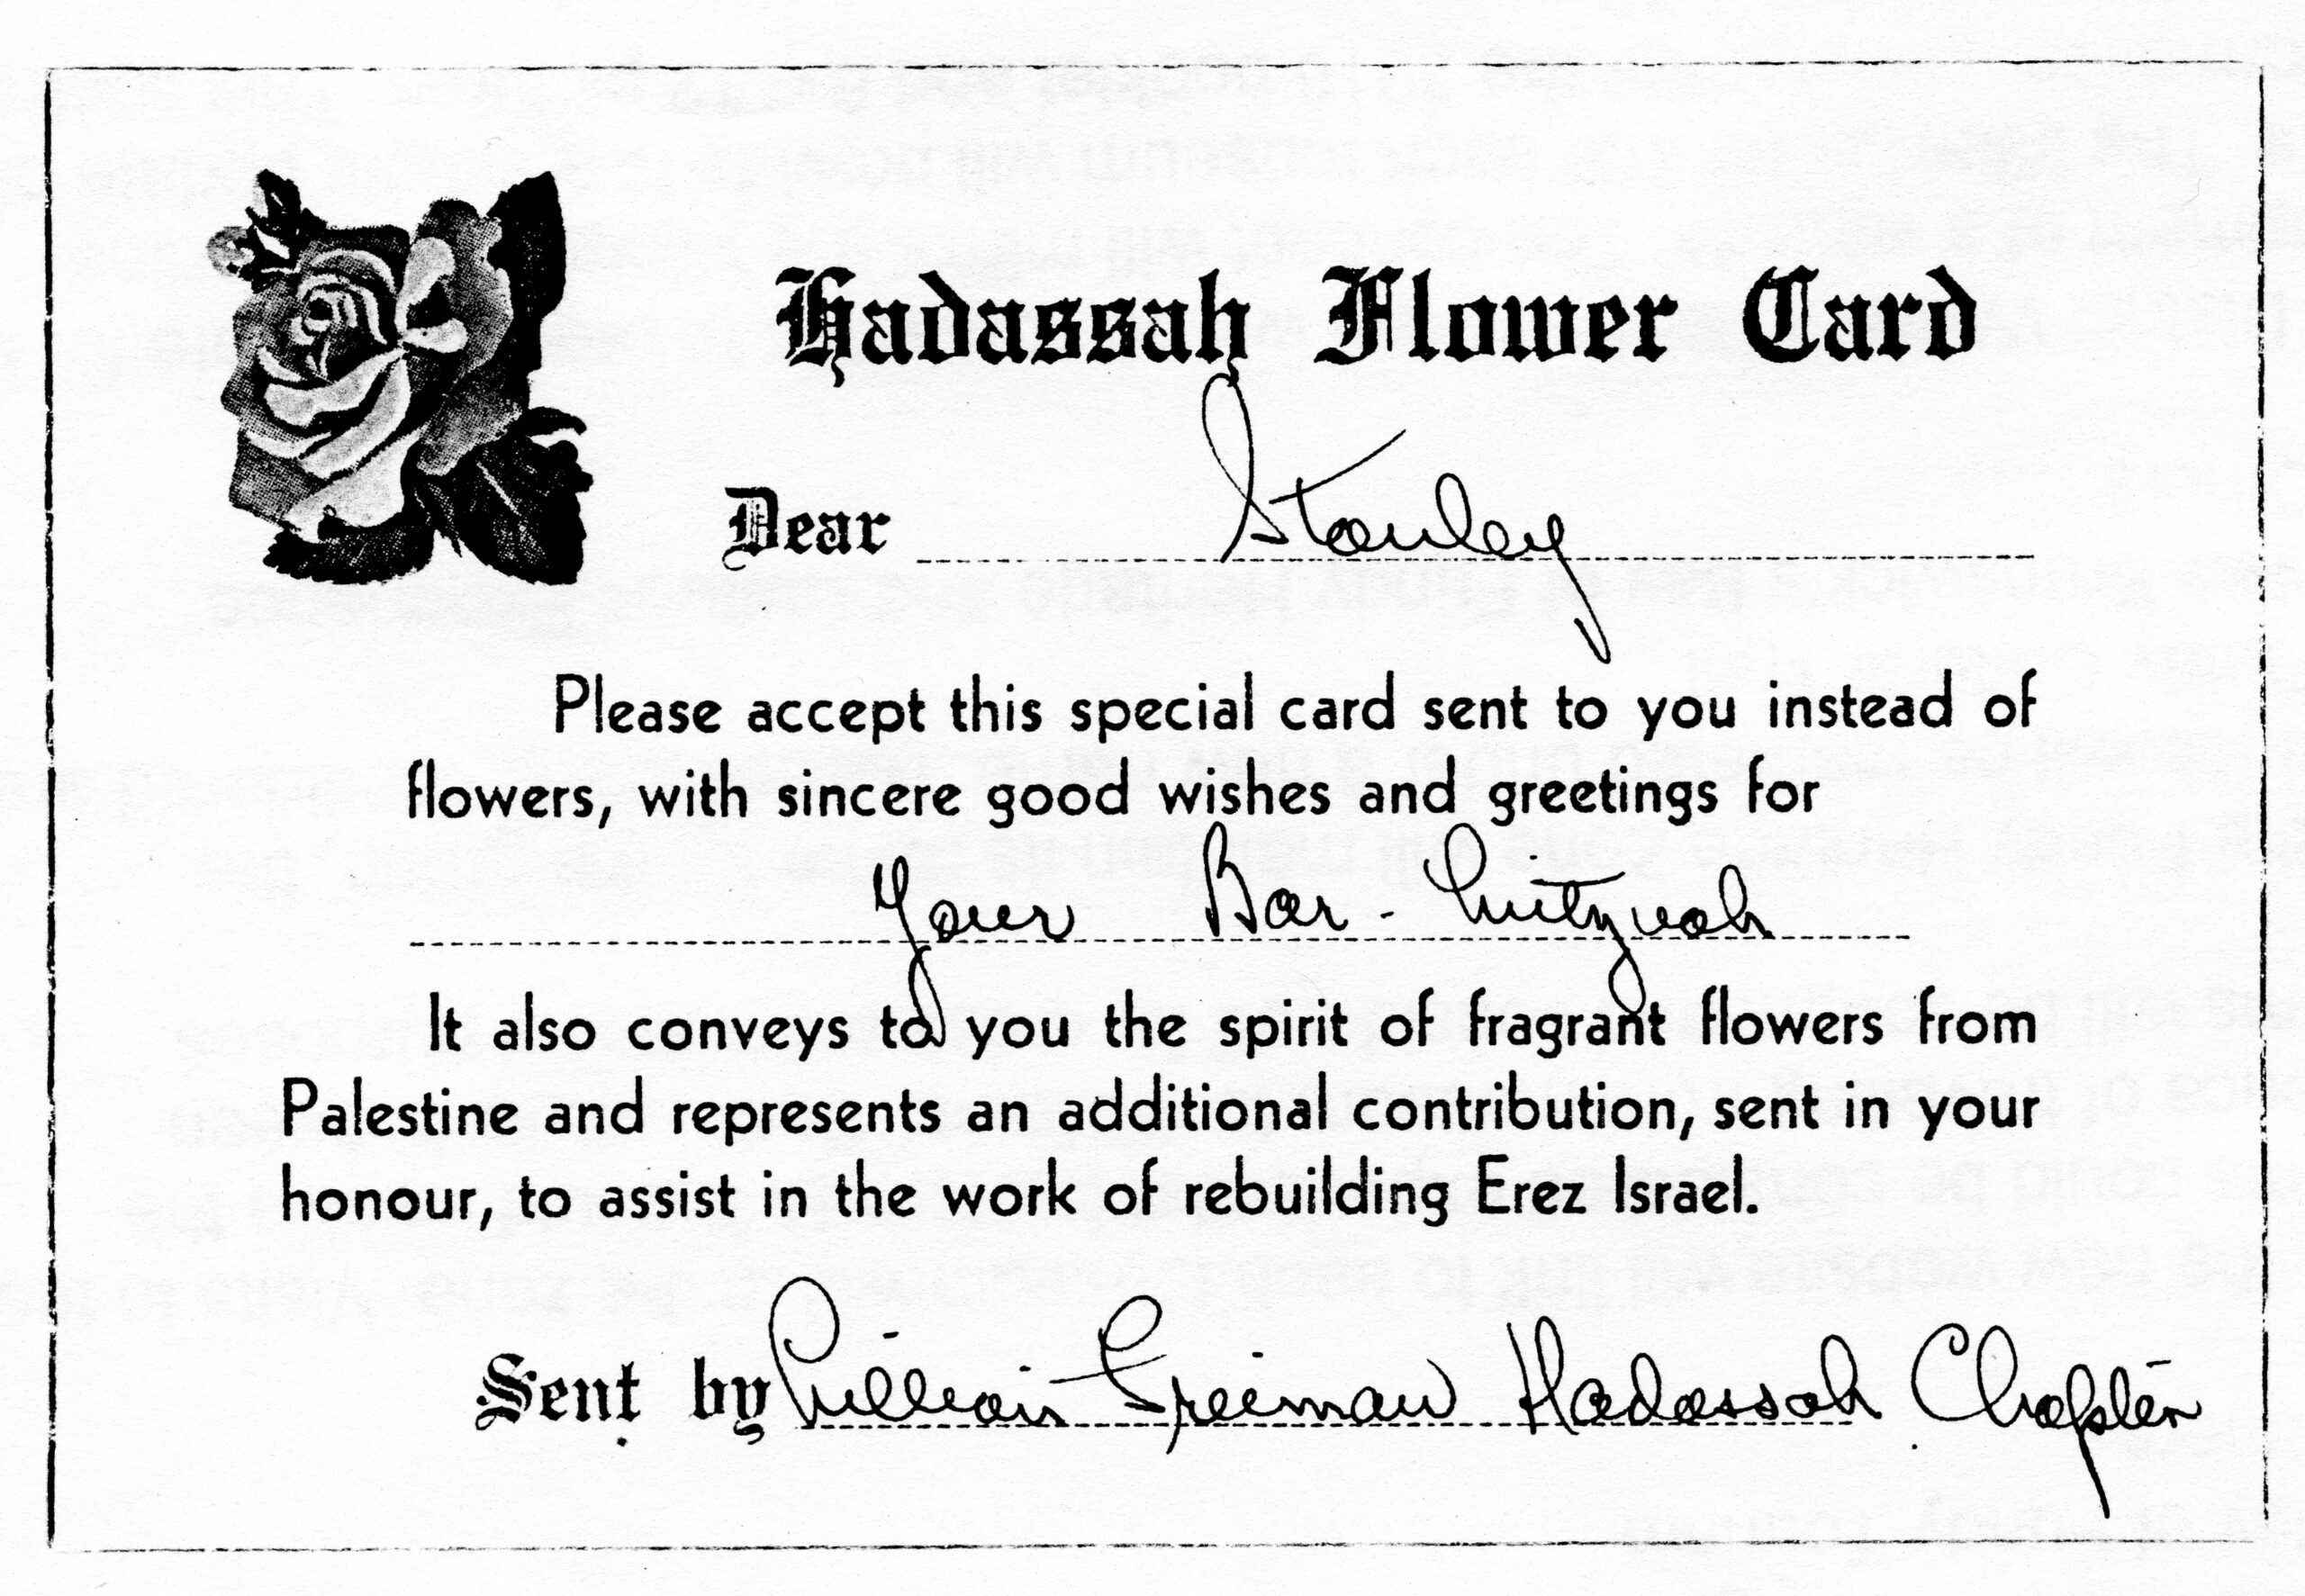 Hadassah Flower Card
Dear Stanley
Please accept this special card sent to you instead of
flowers, with sincere good wishes and greetings for
Your Bar-Mitzvah
It also conveys to you the spirit of fragrant flowers from
Palestine and represents an additional contribution, sent in your
honour, to assist in the work of rebuilding Erez Israel.
Sent by Lillian Freiman Hadassah Chapter